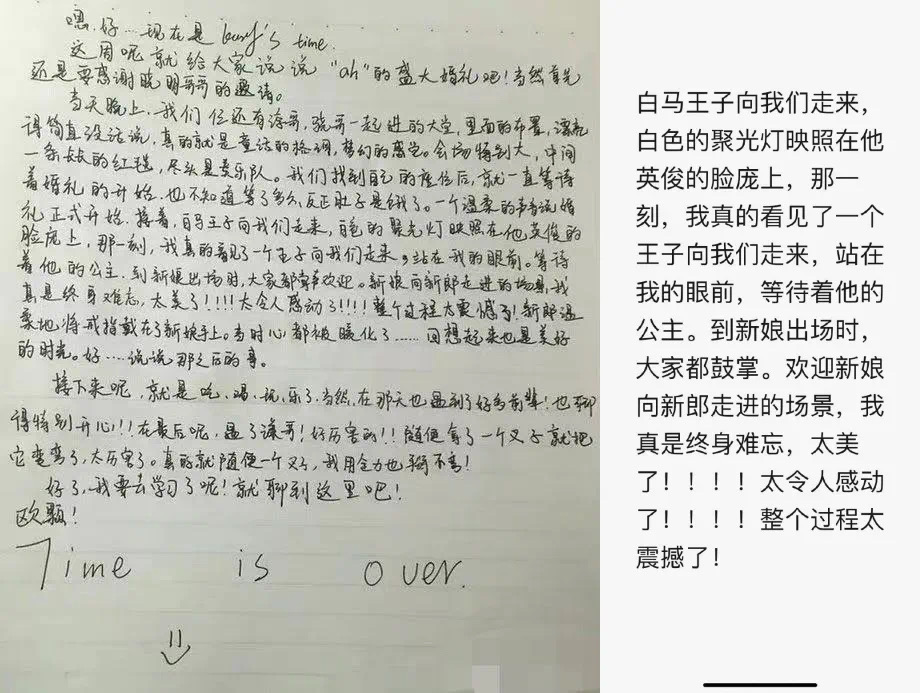 嗯.好…现在是 karry's time.
这周呢就给大家说说"ah"的盛大婚礼吧!当然首先
还是要感谢晓明哥哥的邀请。
当天晚上.我们仨还有涛哥,骁哥一起进的大堂,里面的布置,漂亮
得简直没话说,真的就是童话的格调,梦幻的感觉。会场特别大,中间
一条长长的红毯,尽头是交乐队。我们找到自己的座位后,就一直等待
着婚礼的开始.也不知道等了多久,反正肚子是饿了。一个温柔的声音说婚
礼正式开始.接着,白马王子向我们走来,白色的聚光灯映照在他英俊的
脸庞上,那一刻,我真的看见了一个王子向我们走来,站在我的眼前。等待
着他的公主.到新娘出场时,大家都鼓掌欢迎。新娘向新郎走进的场景,我
真是终身难忘,太美了!!!!太令人感动了!!!!整个过程太震憾了!新郎温
柔地将戒指戴在了新娘手上。当时心都被暖化了……回想起来也是美好
的时光。好……说说那之后的事。
接下来呢,就是吃、喝、玩、乐了.当然,在那天也遇到了好多前辈!也聊
得特别开心!!!在最后呢,遇了谏哥!好厉害的!!随便拿了一个叉子就把
它变弯了,太厉害了。真的就随便一个叉子,我用全力也掰不弯!
好了,我要去学习了呢!就聊到这里吧!
欧颗!
Time is over.
白马王子向我们走来,
白色的聚光灯映照在他
英俊的脸庞上,那一
刻,我真的看见了一个
王子向我们走来,站在
我的眼前,等待着他的
公主。到新娘出场时,
大家都鼓掌。欢迎新娘
向新郎走进的场景,我
真是终身难忘,太美
了!!!!太令人感动
了!!!!整个过程太
震撼了!